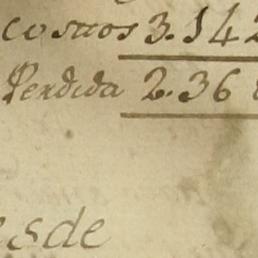 costtos 3.142
Perdida 2.36
esde